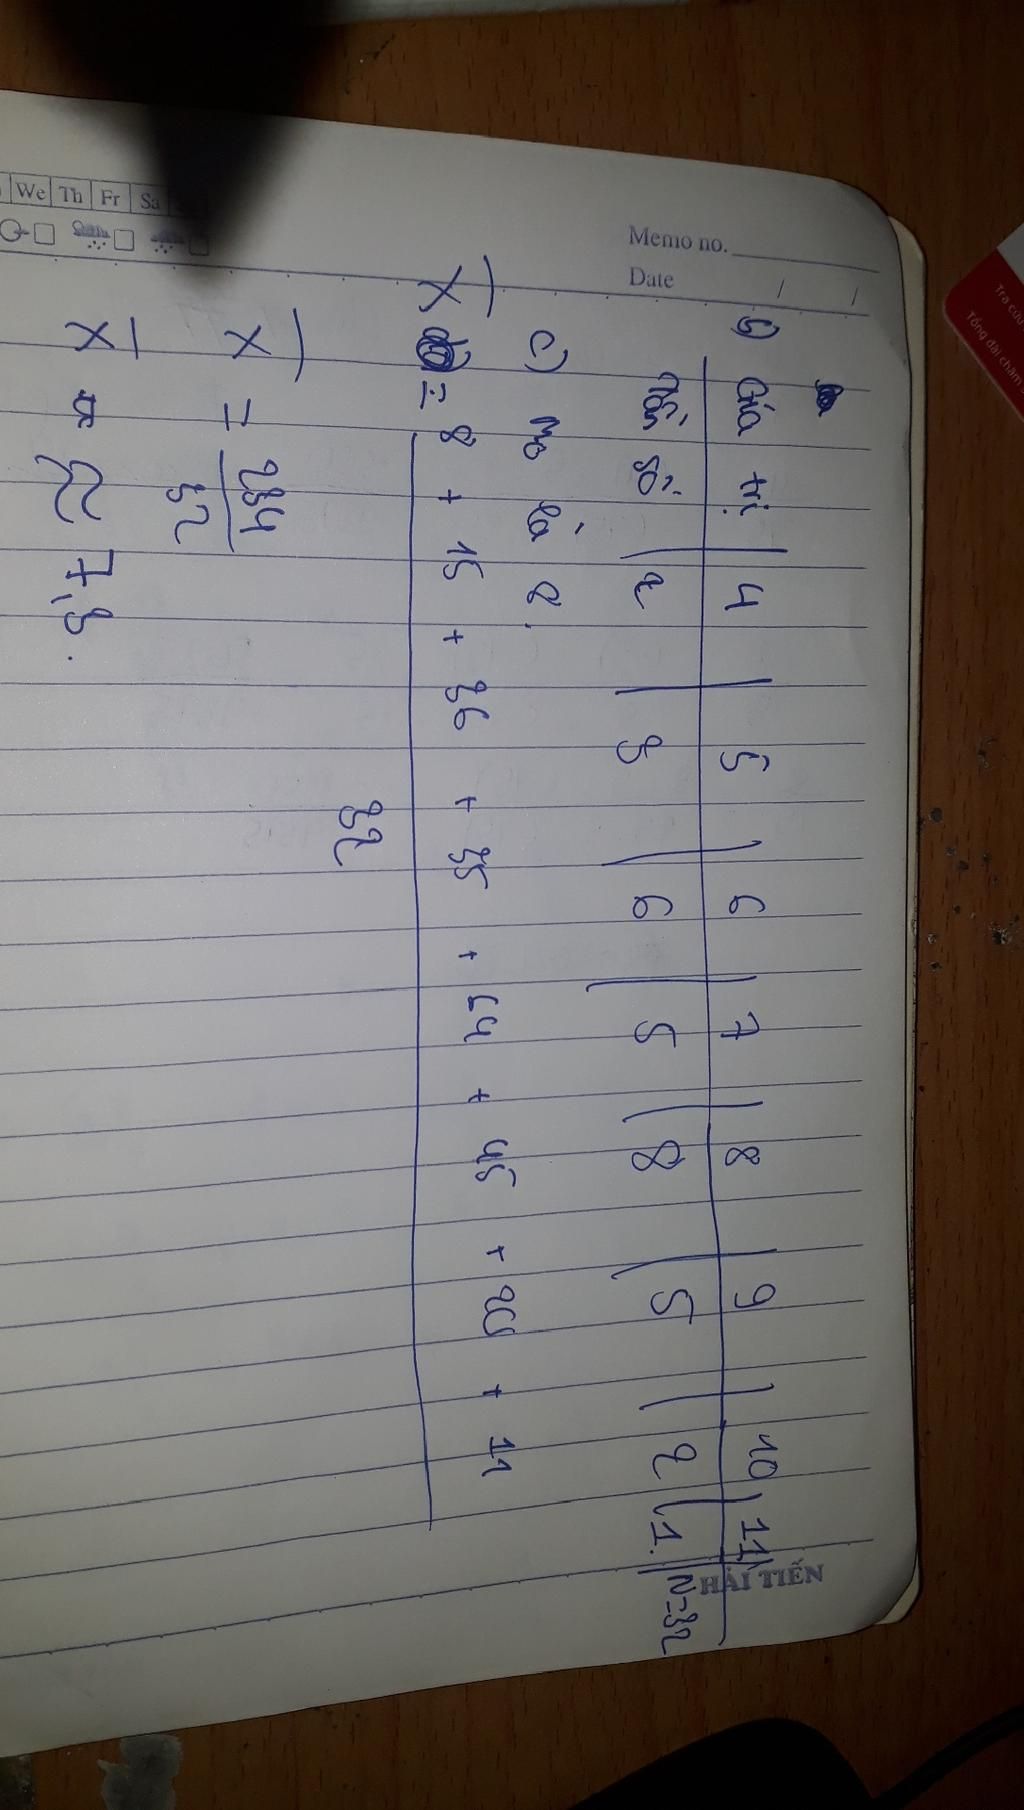 We Th Fr Sa
Memo no.
Date / /
b) Giá trị | 4 | 5 | 6 | 7 | 8 | 9 | 10 | 11
Tần số | 2 | 3 | 6 | 5 | 8 | 5 | 2 | 1 | N=32
c) Mo là 8.
X̄ = 8 + 15 + 36 + 35 + 64 + 45 + 20 + 11
32
X̄ = 234
32
X̄ ≈ 7,3.
HẢI TIẾN
Tra cứu
Tổng đài chăm